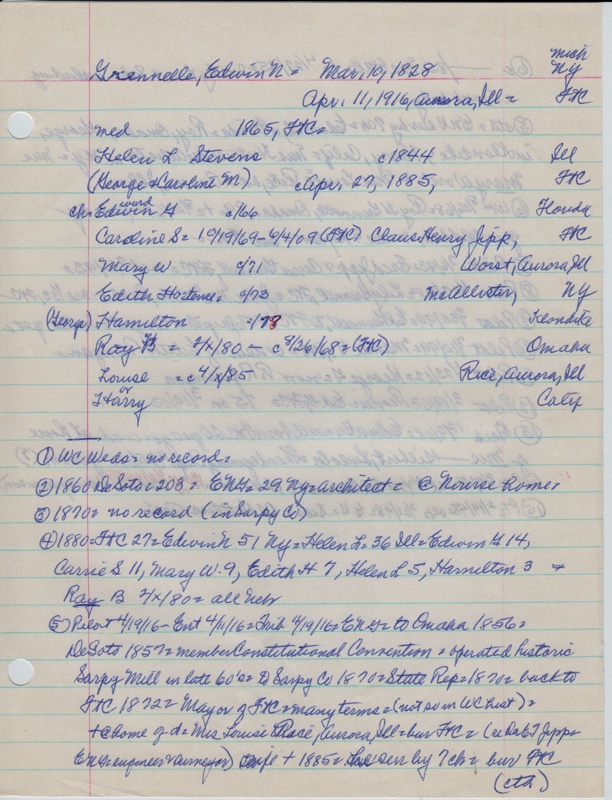 Mich
Grennelle, Edwin N = Mar. 10, 1828 NY
Apr. 11, 1916, Aurora, Ill = FtC
med 1865, FtC =
Helen L Stevens c1844 Ill
(George & Caroline M) Apr. 27, 1885, FtC
ch: Edwin G c/66 Florida
ward
Caroline S = 10/19/69 - 6/4/09 (FtC) Claus Henry Jipp, FtC
Mary W c/71 Worst, Aurora, Ill
Edith Hortense c/73 McAllister, NY
(George) Hamilton c/78 Klondike
Ray B = 2/x/80 - c 8/26/68 = (FtC) Omaha
Louise = c 4/x/85 Rice, Aurora, Ill
or
Harry Calif
① WC Weds = no record =
② 1860 DeSoto = 203 = ENG = 29 Ny = architect = @ Nourse Rome =
③ 1870 = no record (in Sarpy Co)
④ 1880 = FtC 27 = Edwin N 51 Ny = Helen L = 36 Ill = Edwin G 14,
Carrie S 11, Mary W. 9, Edith H 7, Helen L 5, Hamilton 3 +
Ray B 2/x/80 = all Nebr
⑤ Pilot 4/19/16 - Ent 4/11/16 = Trib 4/19/16 = ENG = to Omaha 1856 =
DeSoto 1857 = member Constitutional Convention = operated historic
Sarpy Mill in late 60's = D Sarpy Co 1870 = State Rep = 1870 = back to
FtC 1872 = Mayor of FtC = many terms = (not so in WC hist) =
+ @ home of d = Mrs Louise Race, Aurora, Ill = bur FtC = (re Jipp =
ENG = engineer & surveyor) wife + 1885 = sur by 7 ch = bur FtC
(ctd)